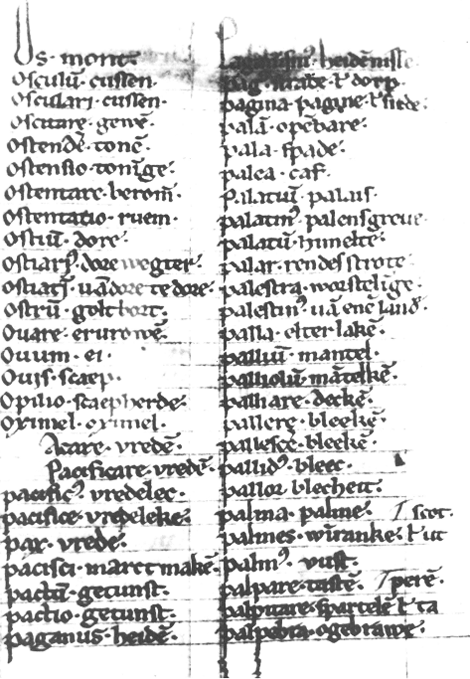 Os· mont·
Osculū· cussen·
Osculari· cussen·
Oscitare· gewē·
Ostendē· tonē·
Ostensio· tonīge·
Ostentare· berom̄·
Ostentatio· ruem·
Ostiū· dore·
Ostiari⁹· dore wegter·
Ostiatī· uā dore te dore·
Ostrū· golt bort·
Ouare· erurowē·
Ouum· ei·
Ouis· scaep·
Opilio· scaepherde·
Oximel· oximel·
Acare· vredē·
Pacificare· vredē·
pacific⁹· vredelec·
pacifice· vredeleke·
pax· vrede·
pacisci· maret makē·
pactū· getunst·
pactio· getunst·
paganus· heidē·
paganism⁹· heidēnisse·
pag⁹· dorp·
pagina· pagine·
palā· opēbare·
pala· spade·
palea· caf·
Palatiū· palais·
palatin⁹· palensgreue·
palatū· himelte·
palar· rendes strote·
palestra· worstelīge·
palestin⁹· uā enē land·
palla· elterlakē·
palliū· mantel·
palliolū· mātelkē·
palliare· deckē·
pallere· bleekē·
pallesce· bleekē·
pallid⁹· bleec·
pallor· blecheit·
palma· palme· scot·
palmes· wīranke· ł ut
palm⁹· vust·
palpare· tastē· perē·
palpitare· spartelē ł ta
palpebra· ogebrawe·